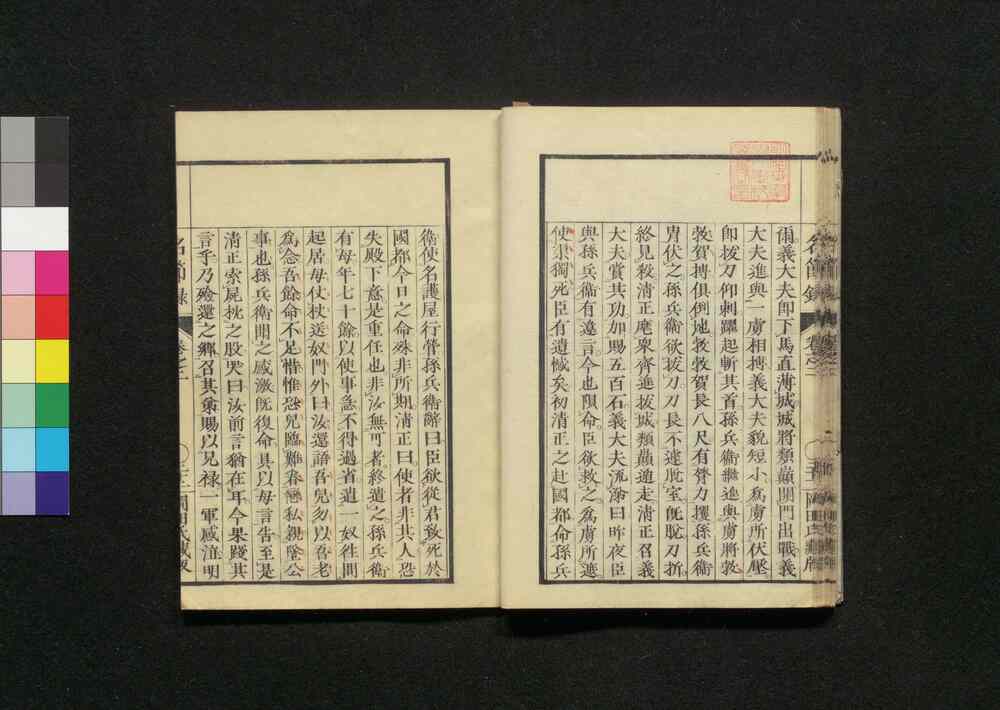 爾義大夫卽下馬直薄城城將類顚開門出戰義
大夫進與一虜相搏義大夫貌短小爲虜所伏壓
卽拔刀仰刺躍起斬其首孫兵衞繼進與虜將敦
敦賀搏俱倒地敦敦賀長八尺有膂力攫孫兵衞
胷伏之孫兵衞欲拔刀刀長不遽脫室旣脫刀折
終見殺淸正麾衆齊進拔城類顚遁走淸正召義
大夫賞其功加賜五百石義大夫流涕曰昨夜臣
與孫兵衞有違言今也隕命臣欲救之爲虜所遮
使渠獨死臣有遺憾矣初淸正之赴國都命孫兵
衞使名護屋行營孫兵衞辭曰臣欲從君致死於
國都今日之命殊非所期淸正曰使者非其人恐
失殿下意是重任也非汝無可者終遣之孫兵衞
有母年七十餘以使事急不得過省遣一奴往問
起居母仗杖送奴門外曰汝還語吾兒勿以吾老
爲念吾餘命不足惜惟恐兒臨難眷戀私親墜公
事也孫兵衞聞之感激旣復命具以母言告至是
淸正索屍枕之股哭曰汝前言猶在耳今果踐其
言乎乃殮還之鄕召其弟賜以兄祿一軍感泣明
名節錄 卷之一 岡田氏藏版